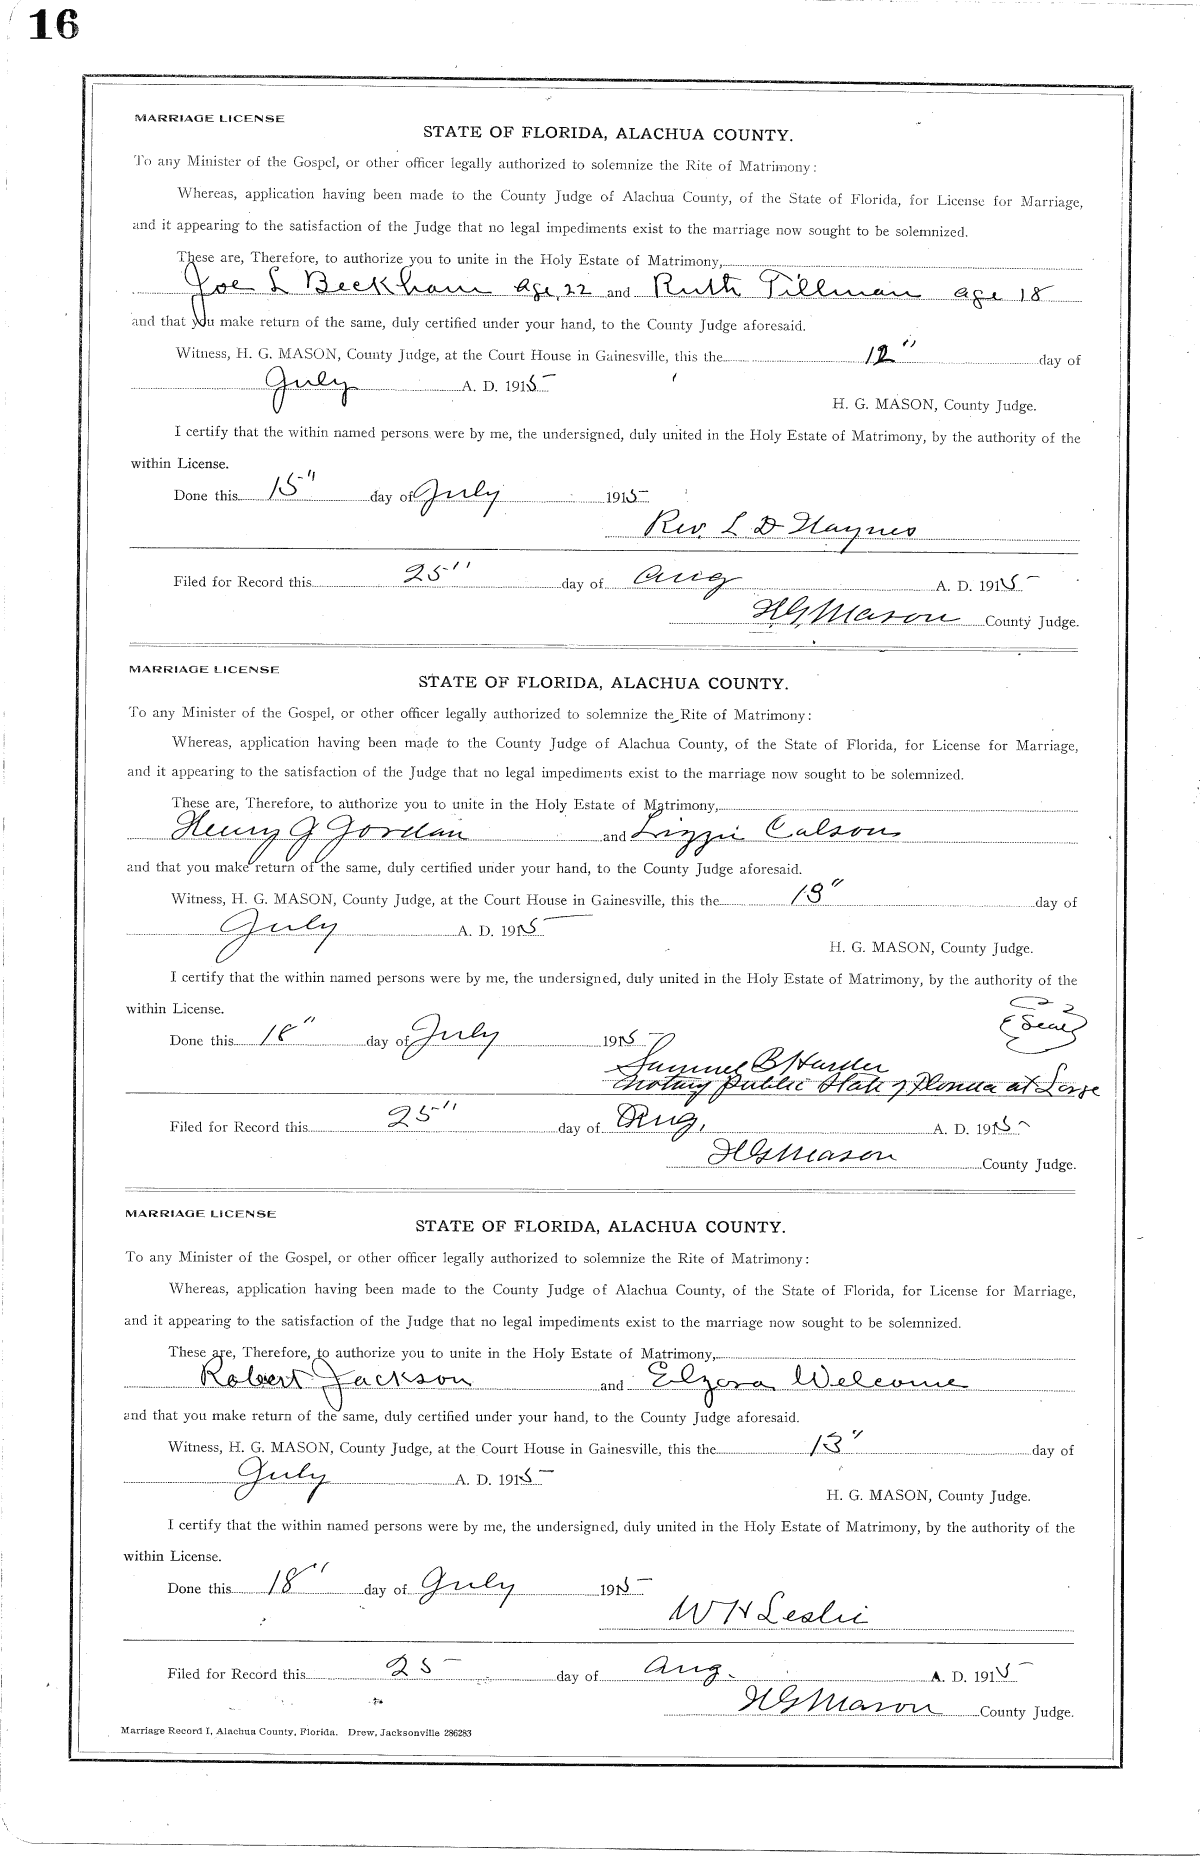 16
MARRIAGE LICENSE
STATE OF FLORIDA, ALACHUA COUNTY.
To any Minister of the Gospel, or other officer legally authorized to solemnize the Rite of Matrimony:
Whereas, application having been made to the County Judge of Alachua County, of the State of Florida, for License for Marriage,
and it appearing to the satisfaction of the Judge that no legal impediments exist to the marriage now sought to be solemnized.
These are, Therefore, to authorize you to unite in the Holy Estate of Matrimony,
Joe L Beckham age 22 and Ruth Tillman age 18
and that you make return of the same, duly certified under your hand, to the County Judge aforesaid.
Witness, H. G. MASON, County Judge, at the Court House in Gainesville, this the 12" day of
July A. D. 1915
H. G. MASON, County Judge.
I certify that the within named persons were by me, the undersigned, duly united in the Holy Estate of Matrimony, by the authority of the
within License.
Done this 15" day of July 1915
Rev. L D Haynes
Filed for Record this 25" day of Aug A. D. 1915
H.G. Mason County Judge.
MARRIAGE LICENSE
STATE OF FLORIDA, ALACHUA COUNTY.
To any Minister of the Gospel, or other officer legally authorized to solemnize the Rite of Matrimony:
Whereas, application having been made to the County Judge of Alachua County, of the State of Florida, for License for Marriage,
and it appearing to the satisfaction of the Judge that no legal impediments exist to the marriage now sought to be solemnized.
These are, Therefore, to authorize you to unite in the Holy Estate of Matrimony,
Henry J Jordan and Lizzie Calsons
and that you make return of the same, duly certified under your hand, to the County Judge aforesaid.
Witness, H. G. MASON, County Judge, at the Court House in Gainesville, this the 13" day of
July A. D. 1915
H. G. MASON, County Judge.
I certify that the within named persons were by me, the undersigned, duly united in the Holy Estate of Matrimony, by the authority of the
within License.
Seal
Done this 18" day of July 1915
Samuel B Harder
Notary Public State of Florida at Large
Filed for Record this 25" day of Aug, A. D. 1915
H G Mason County Judge.
MARRIAGE LICENSE
STATE OF FLORIDA, ALACHUA COUNTY.
To any Minister of the Gospel, or other officer legally authorized to solemnize the Rite of Matrimony:
Whereas, application having been made to the County Judge of Alachua County, of the State of Florida, for License for Marriage,
and it appearing to the satisfaction of the Judge that no legal impediments exist to the marriage now sought to be solemnized.
These are, Therefore, to authorize you to unite in the Holy Estate of Matrimony,
Robert Jackson and Elzora Welcome
and that you make return of the same, duly certified under your hand, to the County Judge aforesaid.
Witness, H. G. MASON, County Judge, at the Court House in Gainesville, this the 13" day of
July A. D. 1915
H. G. MASON, County Judge.
I certify that the within named persons were by me, the undersigned, duly united in the Holy Estate of Matrimony, by the authority of the
within License.
Done this 18" day of July 1915
W H Leslie
Filed for Record this 25 day of Aug. A. D. 1915
H G Mason County Judge.
Marriage Record I, Alachua County, Florida. Drew, Jacksonville 286283